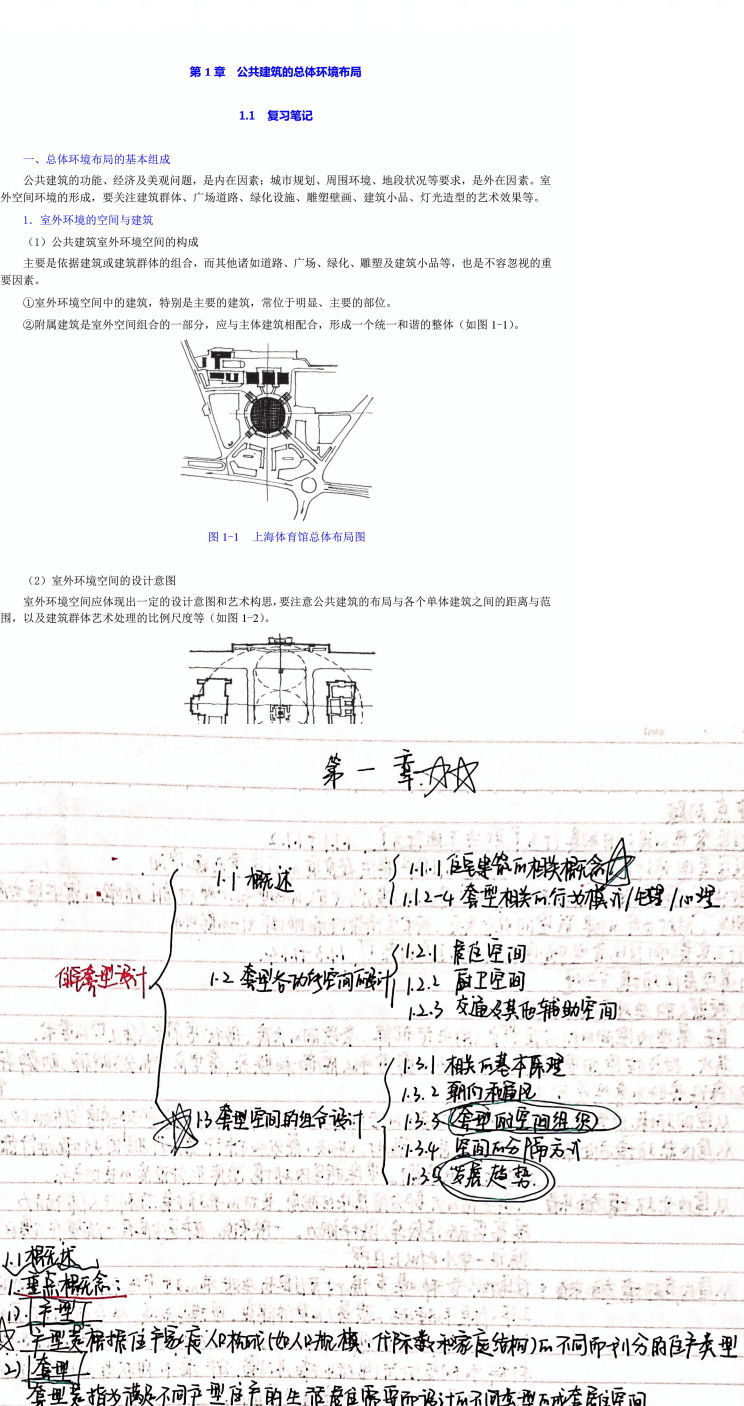 第 1 章 公共建筑的总体环境布局
1.1 复习笔记
一、总体环境布局的基本组成
公共建筑的功能、经济及美观问题，是内在因素；城市规划、周围环境、地段状况等要求，是外在因素。室
外空间环境的形成，要关注建筑群体、广场道路、绿化设施、雕塑壁画、建筑小品、灯光造型的艺术效果等。
1．室外环境的空间与建筑
（1）公共建筑室外环境空间的构成
主要是依据建筑或建筑群体的组合，而其他诸如道路、广场、绿化、雕塑及建筑小品等，也是不容忽视的重
要因素。
①室外环境空间中的建筑，特别是主要的建筑，常位于明显、主要的部位。
②附属建筑是室外空间组合的一部分，应与主体建筑相配合，形成一个统一和谐的整体（如图 1-1）。
图 1-1 上海体育馆总体布局图
（2）室外环境空间的设计意图
室外环境空间应体现出一定的设计意图和艺术构思，要注意公共建筑的布局与各个单体建筑之间的距离与范
围，以及建筑群体艺术处理的比例尺度等（如图 1-2）。
第一章
1.1 概述
1.1.1 住宅建筑的相关概念
1.1.2-4 套型相关的行为模式/生理/心理
住宅套型设计
1.2 套型各功能空间的设计
1.2.1 居住空间
1.2.2 厨卫空间
1.2.3 交通及其他辅助空间
1.3 套型空间的组合设计
1.3.1 相关的基本原理
1.3.2 朝向和通风
1.3.3 套型的空间组织
1.3.4 空间的分隔方式
1.3.5 发展趋势
1.1 概述
1. 重点概念：
1) 户型
户型是根据住户家庭人口构成(如人口规模、代际数和家庭结构)的不同而划分的住户类型
2) 套型
套型是指为满足不同户型住户的生活居住需要而设计的不同类型的成套居住空间